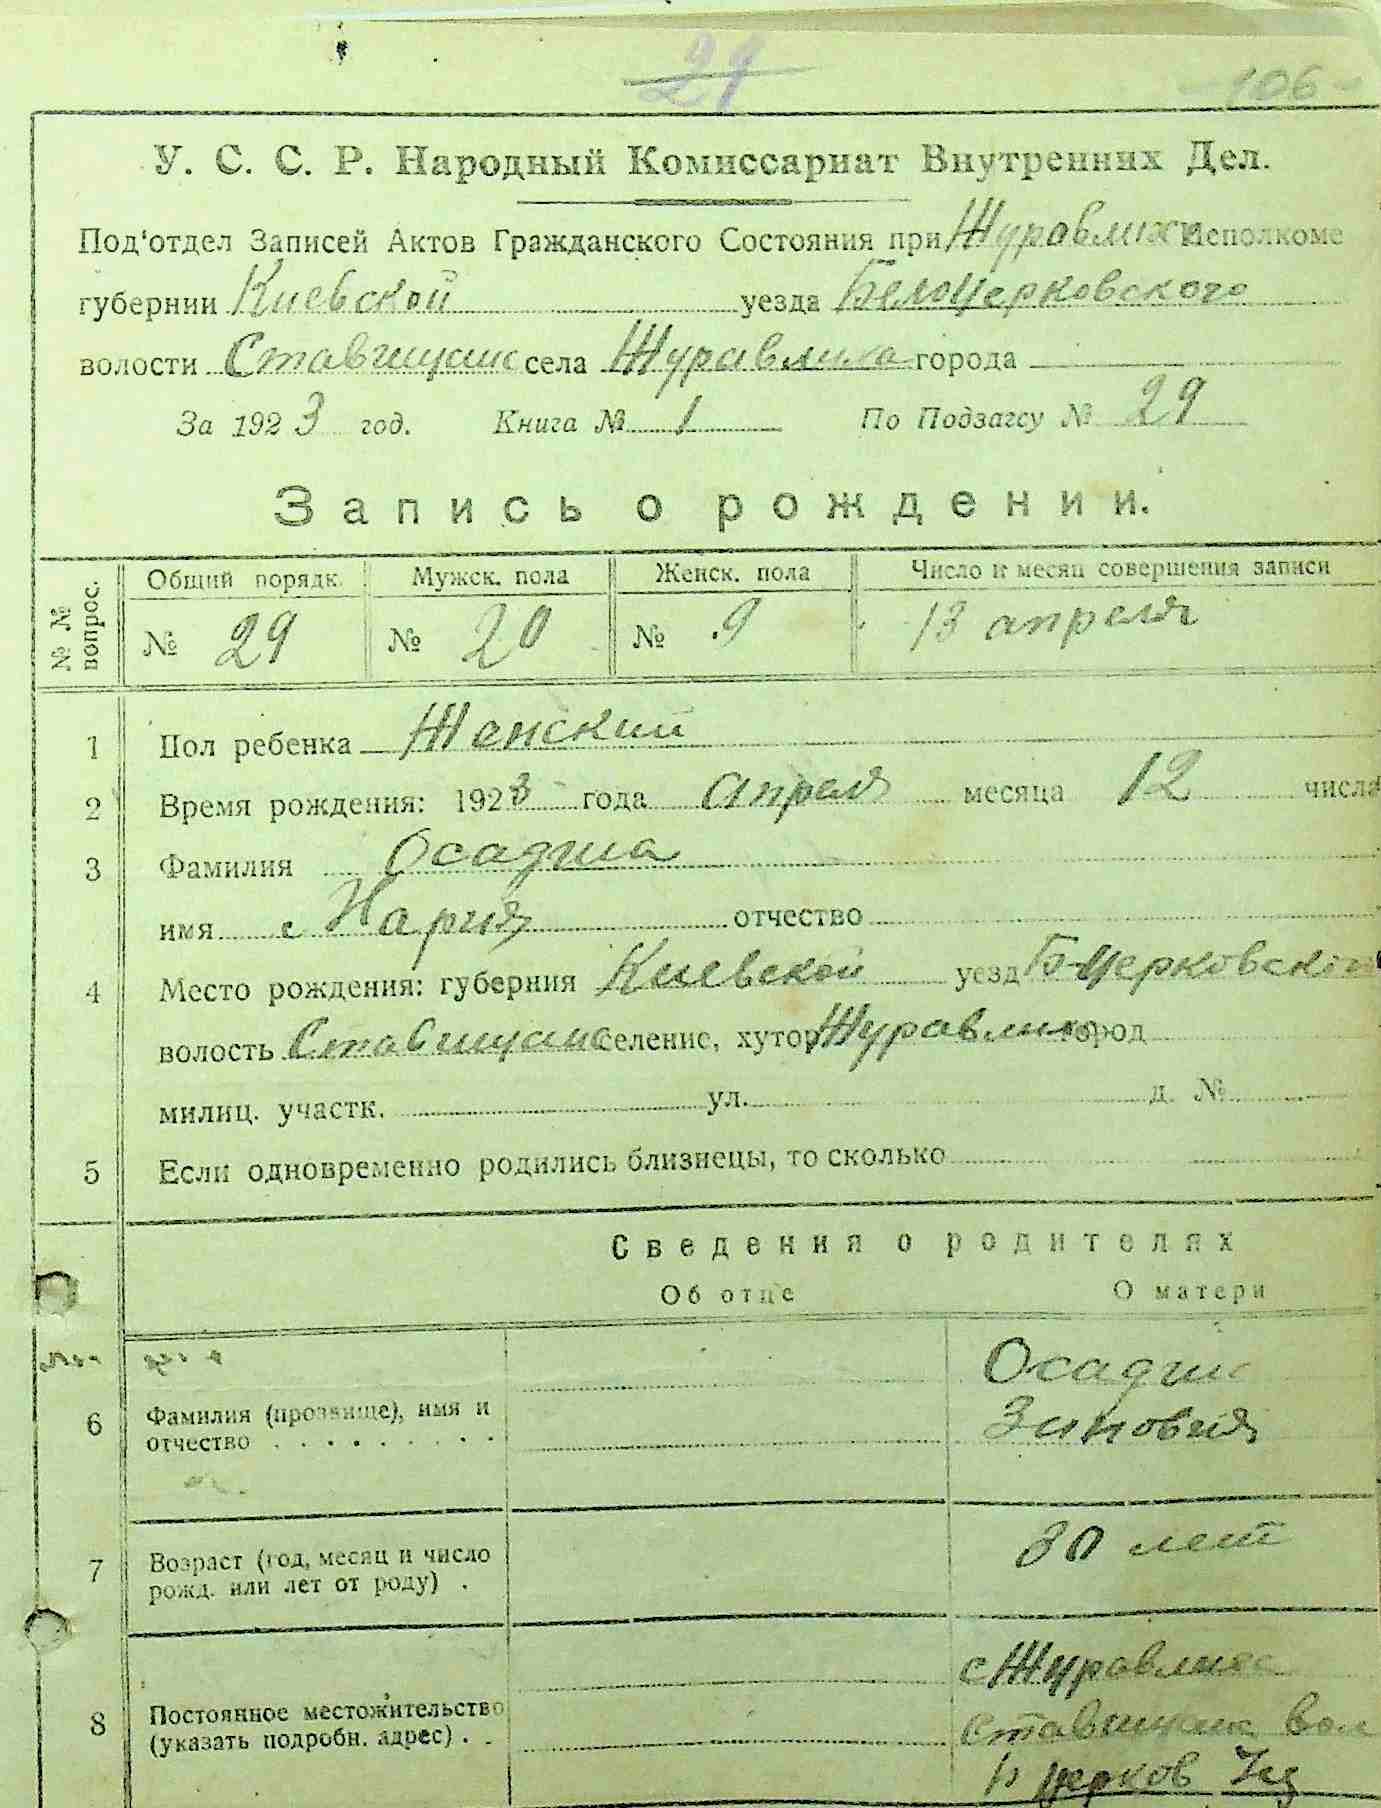 29
- 106 -
У. С. С. Р. Народный Комиссариат Внутренних Дел.
Под'отдел Записей Актов Гражданского Состояния при Журавлих Исполкоме
губернии Киевской уезда Белоцерковского
волости Ставищанс села Журавлиха города
За 1923 год. Книга № 1 По Подзагсу № 29
Запись о рождении.
№ № вопрос.
Общий порядк. Мужск. пола Женск. пола Число и месяц совершения записи
№ 29 № 20 № 9 13 апреля
1 Пол ребенка Женский
2 Время рождения: 1923 года апреля месяца 12 числа
3 Фамилия Осадчиа
имя Мария отчество
4 Место рождения: губерния Киевской уезд Б-Церковской
волость Ставищанс селение, хутор Журавлиха город
милиц. участк. ул. д. №
5 Если одновременно родились близнецы, то сколько
Сведения о родителях
Об отце О матери
6 Фамилия (прозвище), имя и отчество
Осадчи
Зиновия
7 Возраст (год, месяц и число рожд. или лет от роду) . 30 лет
8 Постоянное местожительство (указать подробн. адрес) . .
с Журавлиха
Ставищанс вол
Б церков